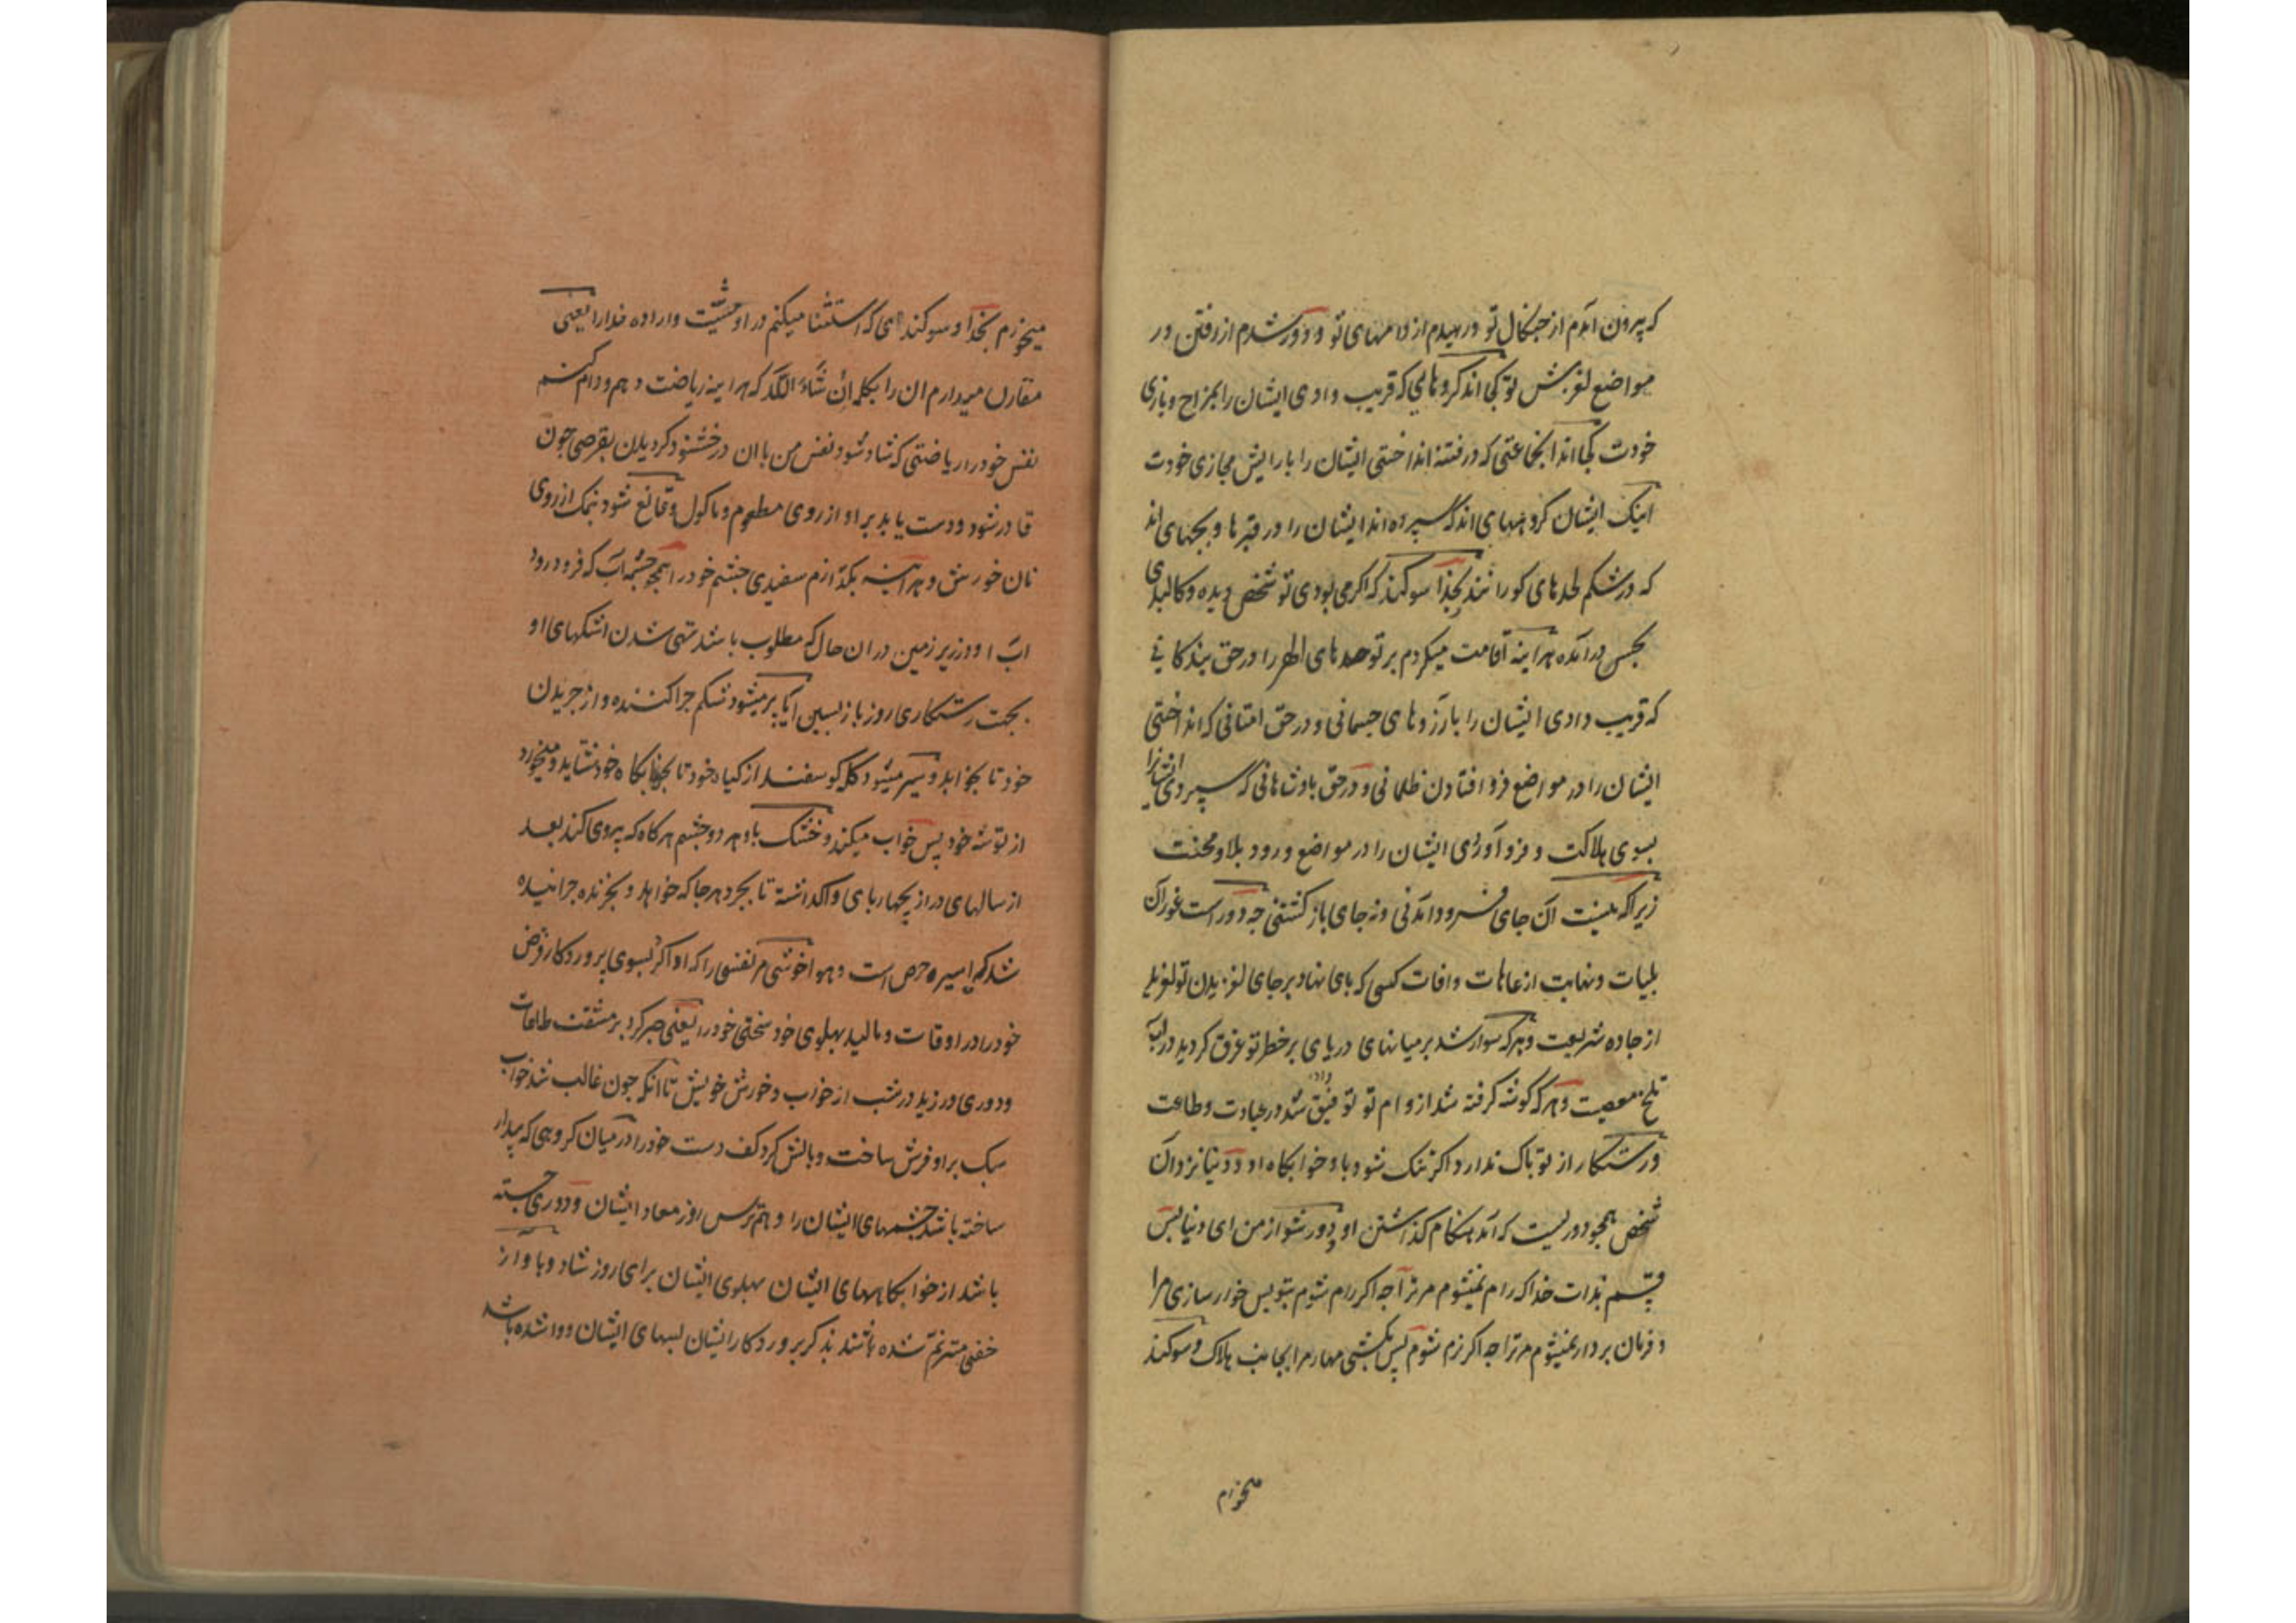 که بیرون آمدم از چنکال تو و رهیدم از دامهای تو و دور شدم از رفتن در
مواضع لغزش تو کجااند کروهایی که فریب دادی ایشان را بمزاح و بازی
خودت کجااند انجماعتی که در فتنه انداختی ایشان را بارایش مجازی خودت
اینک ایشان کروههای اند که سپرده اند ایشان را در قبرها و بچهای اند
که در شکم لحدهای کورانند بخدا سوکند که اکر می بودی تو شخص دیده و کالبدی
بحس درآمده هراینه اقامت میکردم بر تو حدهای الهی را در حق بندکانی
که فریب دادی ایشان را بآرزوهای جسمانی و در حق امتانی که انداختی
ایشان را در مواضع فرو افتادن ظلمانی و در حق بادشاهانی که سپردی ایشانرا
بسوی هلاکت و فرو آوردی ایشان را در مواضع ورود بلا و محنت
زیرا که نیست آن جای فرود آمدنی و نه جای باز کشتنی چه دور است غور آن
بلیات و نهایت از عاهات و افات کسی که پای نهاد بر جای لغزیدن تو لغزید
از جاده شریعت و هر که سوار شد بر میانهای دریای پر خطر تو غرق کردید در لب
تلخ معصیت و هر که کوشه کرفته شد از دام تو توفیق داده شد در عبادت و طاعت
و رستکار از تو باک ندارد اکر تنک شود باو خوابکاه او و دنیا نزد آن
شخص همچو دوریست که آمد هنکام کذاشتن او دور شو از من ای دنیا پس
قسم بذات خدا که رام نمیشوم مر ترا چه اکر رام شوم بتو پس خوار سازی مرا
و فرمان بردار نمیشوم مر ترا چه اکر نرم شوم پس بکشی مهار مرا بجانب هلاک و سوکند
میخورم
میخورم بخدا و سوکندی که استثنا میکنم در او مشیت و اراده خدا را یعنی
مقارن میدارم ان را بکلمه ان شاء الله که هراینه ریاضت دهم و رام کنم
نفس خود را ریاضتی که شاد شود نفس من با ان در خشنود کردیدن بقرصی چون
قادر شود و دست یابد بر او از روی مطعوم و ماکول و قانع شود بنمک از روی
نان خورش و هراینه بکذارم سفیدی چشم خود را همچو چشمه آب که فرو رود
آب او در زیر زمین در ان حال که مطلوب باشد تهی شدن اشکهای او
بجهت رستکاری روز باز پسین آیا پر میشود شکم چرا کننده از چریدن
خود تا بخوابد و سیر میشود کله کوسفند از کیاه خود تا بخوابکاه خود شتابد و میخورد
از توشه خود پس خواب میکند و خشک باد هر دو چشم هر کاه که پیروی کند بعد
از سالهای دراز بچهارپای واکذاشته تا بچرد هر جا که خواهد و بچرنده چرانیده
شد که اسیر حرص است و هوا خوشی مر نفسی را که ادا کرد بسوی پروردکار فرض
خود را در اوقات و مالید بپهلوی خود سختی خود را یعنی صبر کرد بر مشقت طاعات
و دوری ورزید در شب از خواب و خورش خویش تا انکه چون غالب شد خواب
سبک بر او فرش ساخت و بالش کرد کف دست خود را در میان کروهی که بیدار
ساخته باشد چشمهای ایشان را وهم ترس روز معاد ایشان و دوری جسته
باشد از خوابکاههای ایشان پهلوی ایشان برای روز شاد و با واز
خفی مترنم شده باشند بذکر پروردکار ایشان لبهای ایشان و وا شده باشد